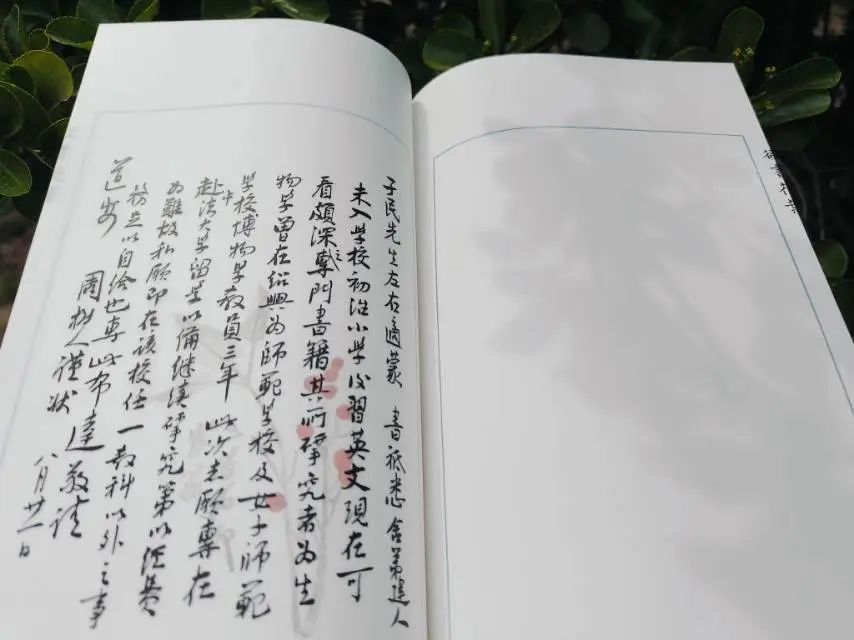 孑民先生左右適蒙 書祗悉舍弟建人
未入学校初治小学後習英文現在可
看頗深之專門書籍其所研究者為生
物学曾在紹興為師範学校及女子師範
学校博物学教員三年此次志願專在
赴中法大学留学以備继續研究第以經費
為難故私願即在該校任一教科以外之事
務足以自給也專此布達敬請
道安
周树人谨状
八月廿一日